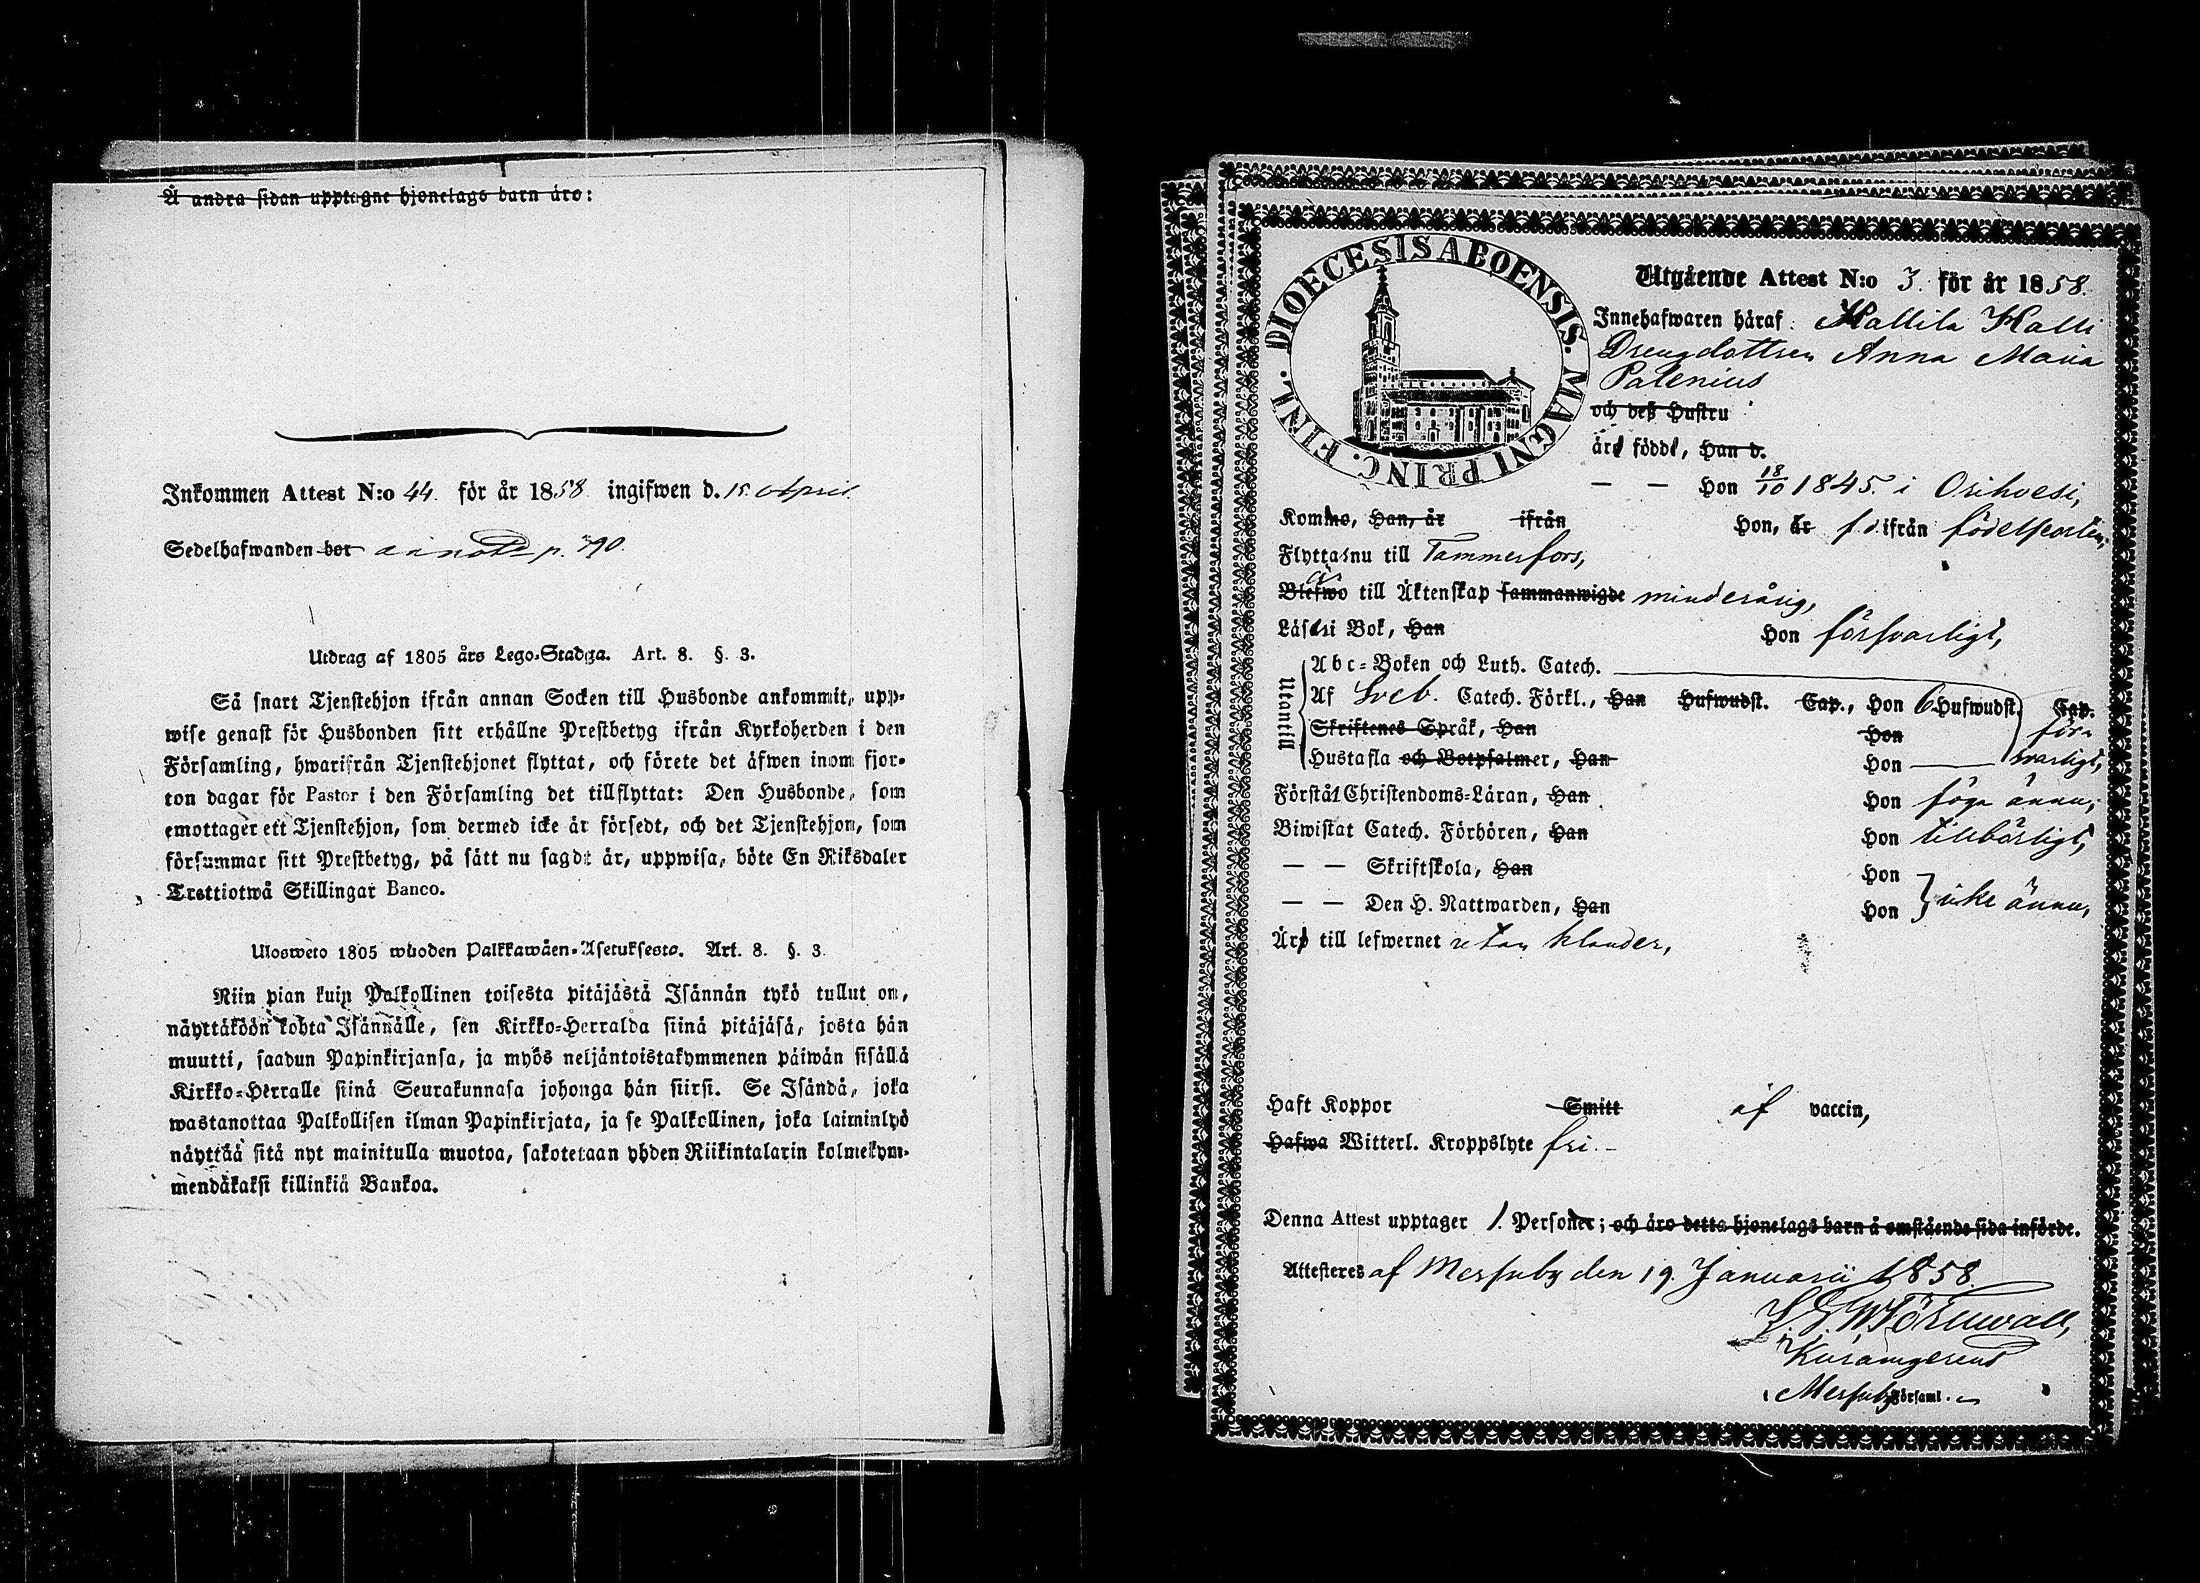 Å andra sidan upptagne hjonelags barn äro:
Inkommen Attest N:o 44. för år 1858 ingifwen d. 15 April
Sedelhafwanden bor annotd p. 790.
Utdrag af 1805 års Lego-Stadga. Art. 8. §. 3.
Så snart Tjenstehjon ifrån annan Socken till Husbonde ankommit, upp-
wise genast för Husbonden sitt erhållne Prestbetyg ifrån Kyrkoherden i den
Församling, hwarifrån Tjenstehjonet flyttat, och förete det äfwen inom fjor-
ton dagar för Pastor i den Församling det tillflyttat: Den Husbonde, som
emottager ett Tjenstehjon, som dermed icke är försedt, och det Tjenstehjon, som
försummar sitt Prestbetyg, på sätt nu sagdt är, uppwisa, böte En Riksdaler
Trettiotwå Skillingar Banco.
Ulosweto 1805 wuoden Palkkawäen-Asetuksesta. Art. 8. §. 3.
Niin pian kuin Palkollinen toisesta pitäjästä Isännän tykö tullut on,
näyttäköön kohta Isännälle, sen Kirkko-Herralda siinä pitäjäsä, josta hän
muutti, saadun Papinkirjansa, ja myös neljäntoistakymmenen päiwän sisällä
Kirkko-Herralle siinä Seurakunnasa johonga hän siirsi. Se Isändä, joka
wastanottaa Palkollisen ilman Papinkirjata, ja se Palkollinen, joka laiminlyö
näyttää sitä nyt mainitulla muotoa, sakotetaan yhden Riikintalarin kolmekym-
mendäkaksi killinkiä Bankoa.
DIOECESIS ABOENSIS. MAGNI PRINC. FINL.
Utgående Attest N:o 3. för år 1858.
Innehafwaren häraf: Hallila Halli
Drengdottren Anna Maria
Palenius
och deß Hustru
äro födde, Han d.
— — Hon 18/10 1845. i Orihvesi,
Komne, Han, är ifrån Hon, är f d ifrån födelseorten,
Flyttar nu till Tammerfors,
Blefwo är till Äktenskap sammanwigde minderårig,
Läser i Bok, Han Hon försvarligt,
Utantill
Abc-Boken och Luth. Catech.
Af Sveb. Catech. Förkl., Han Hufwudst. Cap., Hon 6 Hufwudst. Cap.
Skriftenes Språk, Han Hon för-
Hustafla och Botpsalmer, Han Hon svarligt,
Förstår Christendoms-Läran, Han Hon föga ännu,
Biwistat Catech. Förhören, Han Hon tillbörligt,
— — Skriftskola, Han Hon
— — Den H. Nattwarden, Han Hon icke ännu,
Äro till lefwernet utan klander,
Haft Koppor Smitt af vaccin,
Hafwa Witterl. Kroppslyte fri. –
Denna Attest upptager 1. Personer; och äro detta hjonelags barn å omstående sida införde.
Attesteres af Messuby den 19. Januarii 1858.
Törnwall,
Messuby Församl.